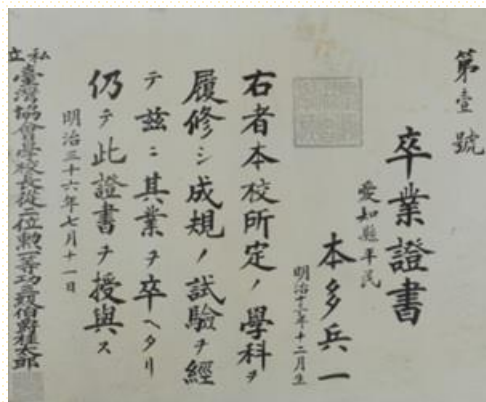 第壹號
卒業證書
愛知縣平民
本多兵一
明治十六年十二月生
右者本校所定ノ學科ヲ
履修シ成規ノ試驗ヲ經
テ茲ニ其業ヲ卒ヘタリ
仍テ此證書ヲ授與ス
明治三十六年七月十一日
私立臺灣協會學校長從二位勲一等功三級伯爵桂太郎